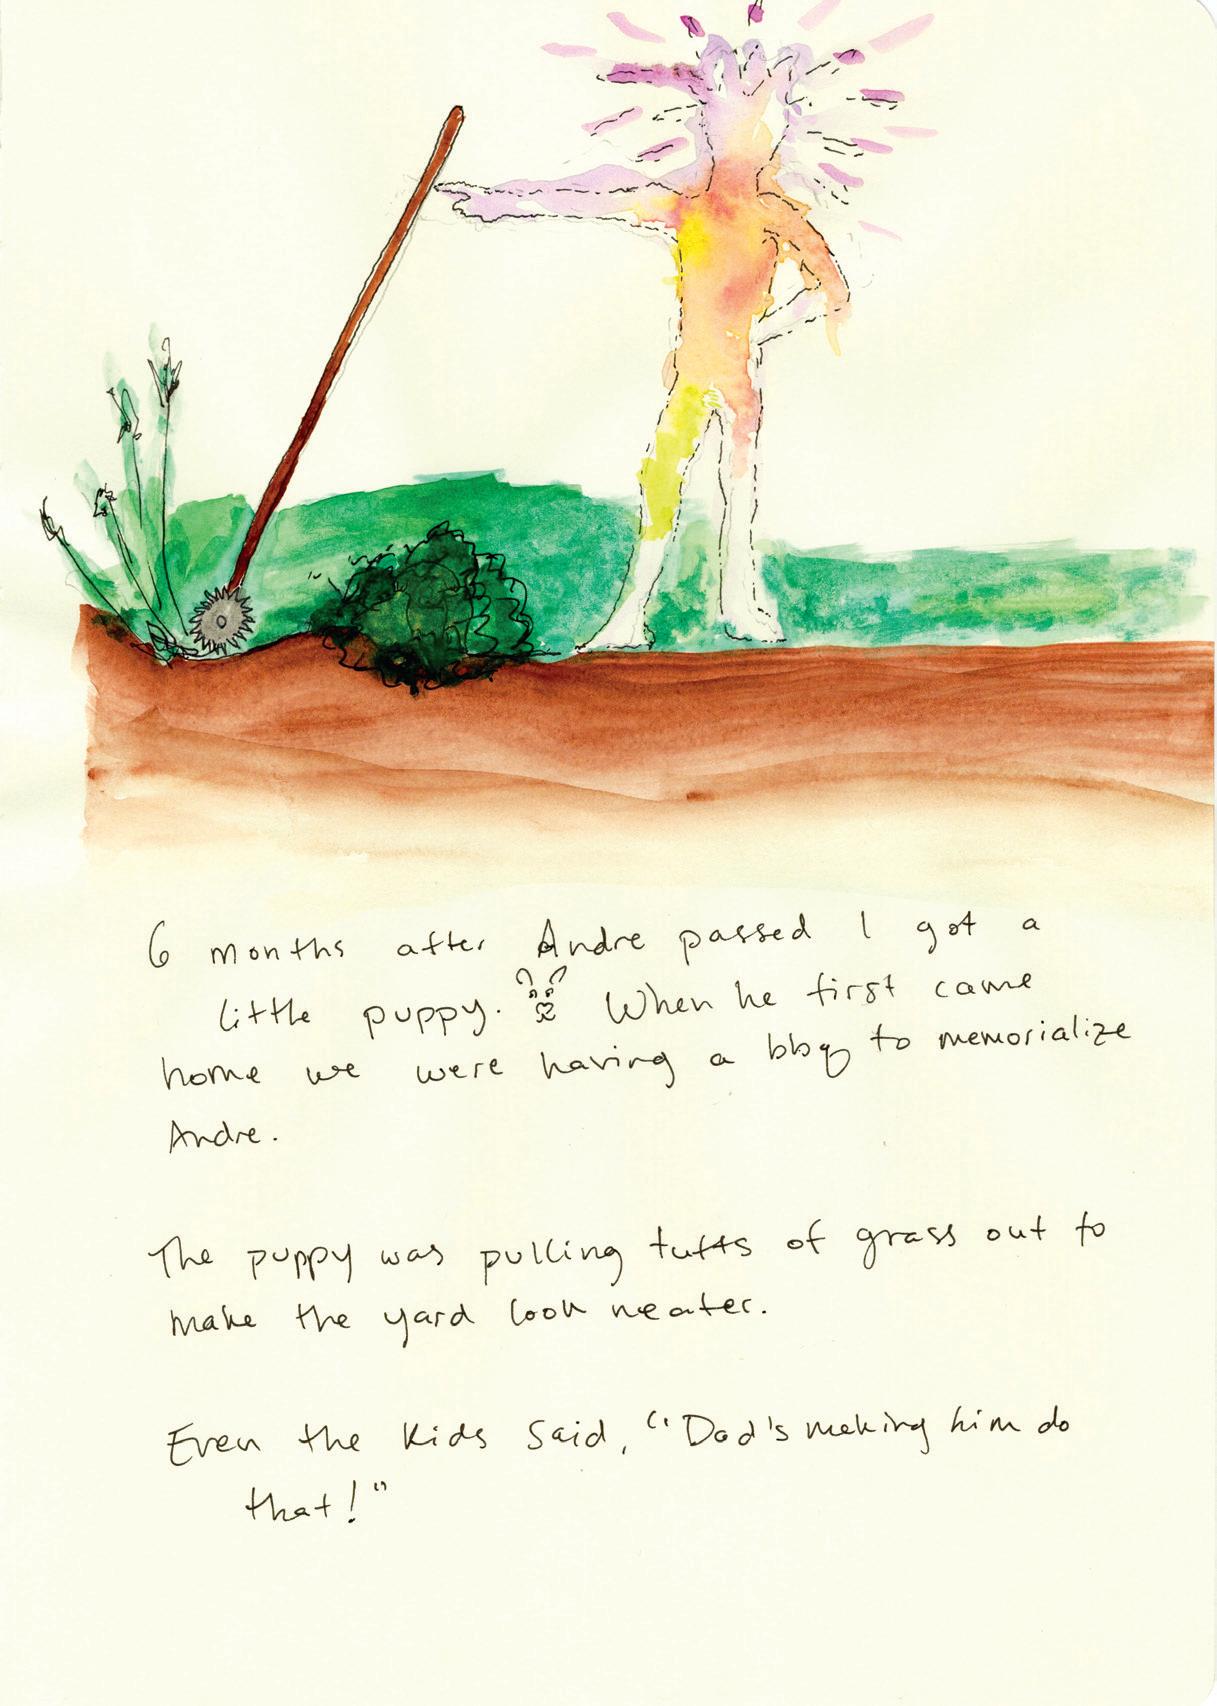 6 months after Andre passed I got a
little puppy. When he first came
home we were having a bbq to memorialize
Andre.
The puppy was pulling tufts of grass out to
make the yard look neater.
Even the kids said, "Dad's making him do
that!"